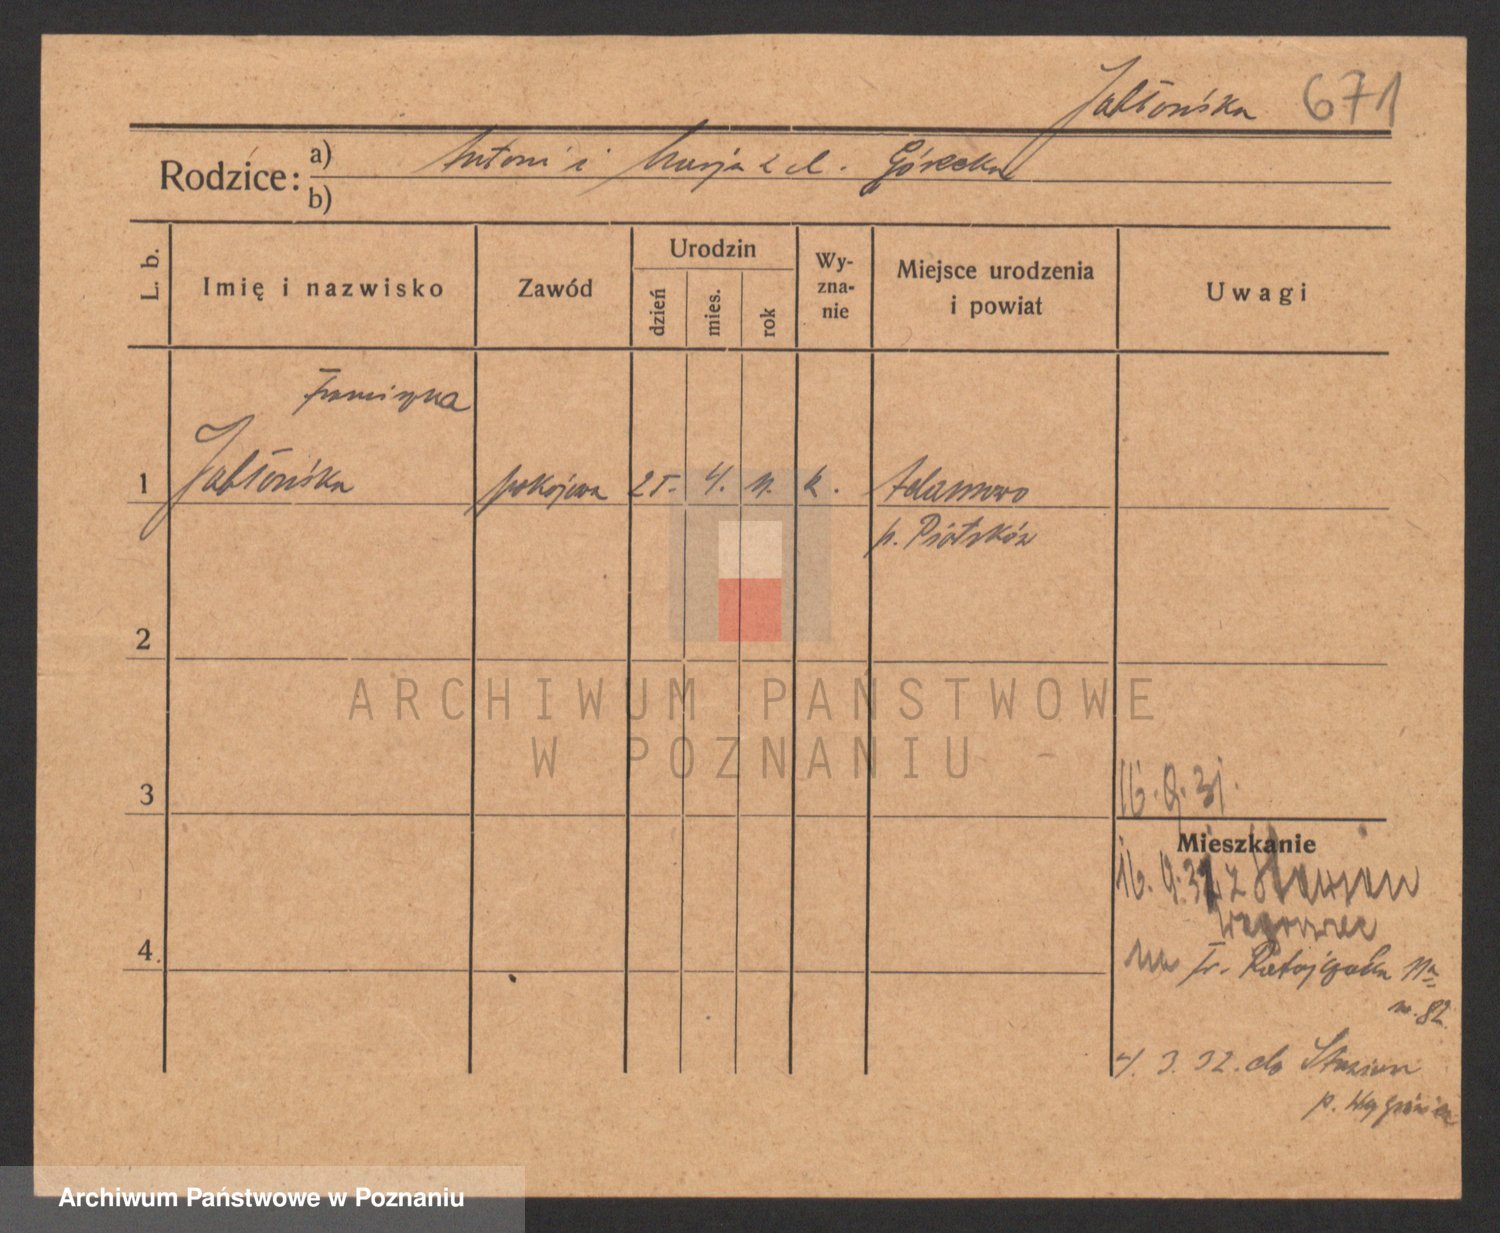 Jabłońska 671
Rodzice: a) Antoni i Marja z d. Górecka
b)
L. b. Imię i nazwisko Zawód Urodzin dzień mies. rok Wy-zna-nie Miejsce urodzenia i powiat Uwagi
Franciszka
1 Jabłońska pokojowa 25. 4. 11. k. Adamowo
p. Piotrków
2
ARCHIWUM PAŃSTWOWE
W POZNANIU
3 16.9.31.
Mieszkanie
16.9.31 z
4 Fr. Ratajczaka
nr. 82
4. 3. 32. do
p.
Archiwum Państwowe w Poznaniu